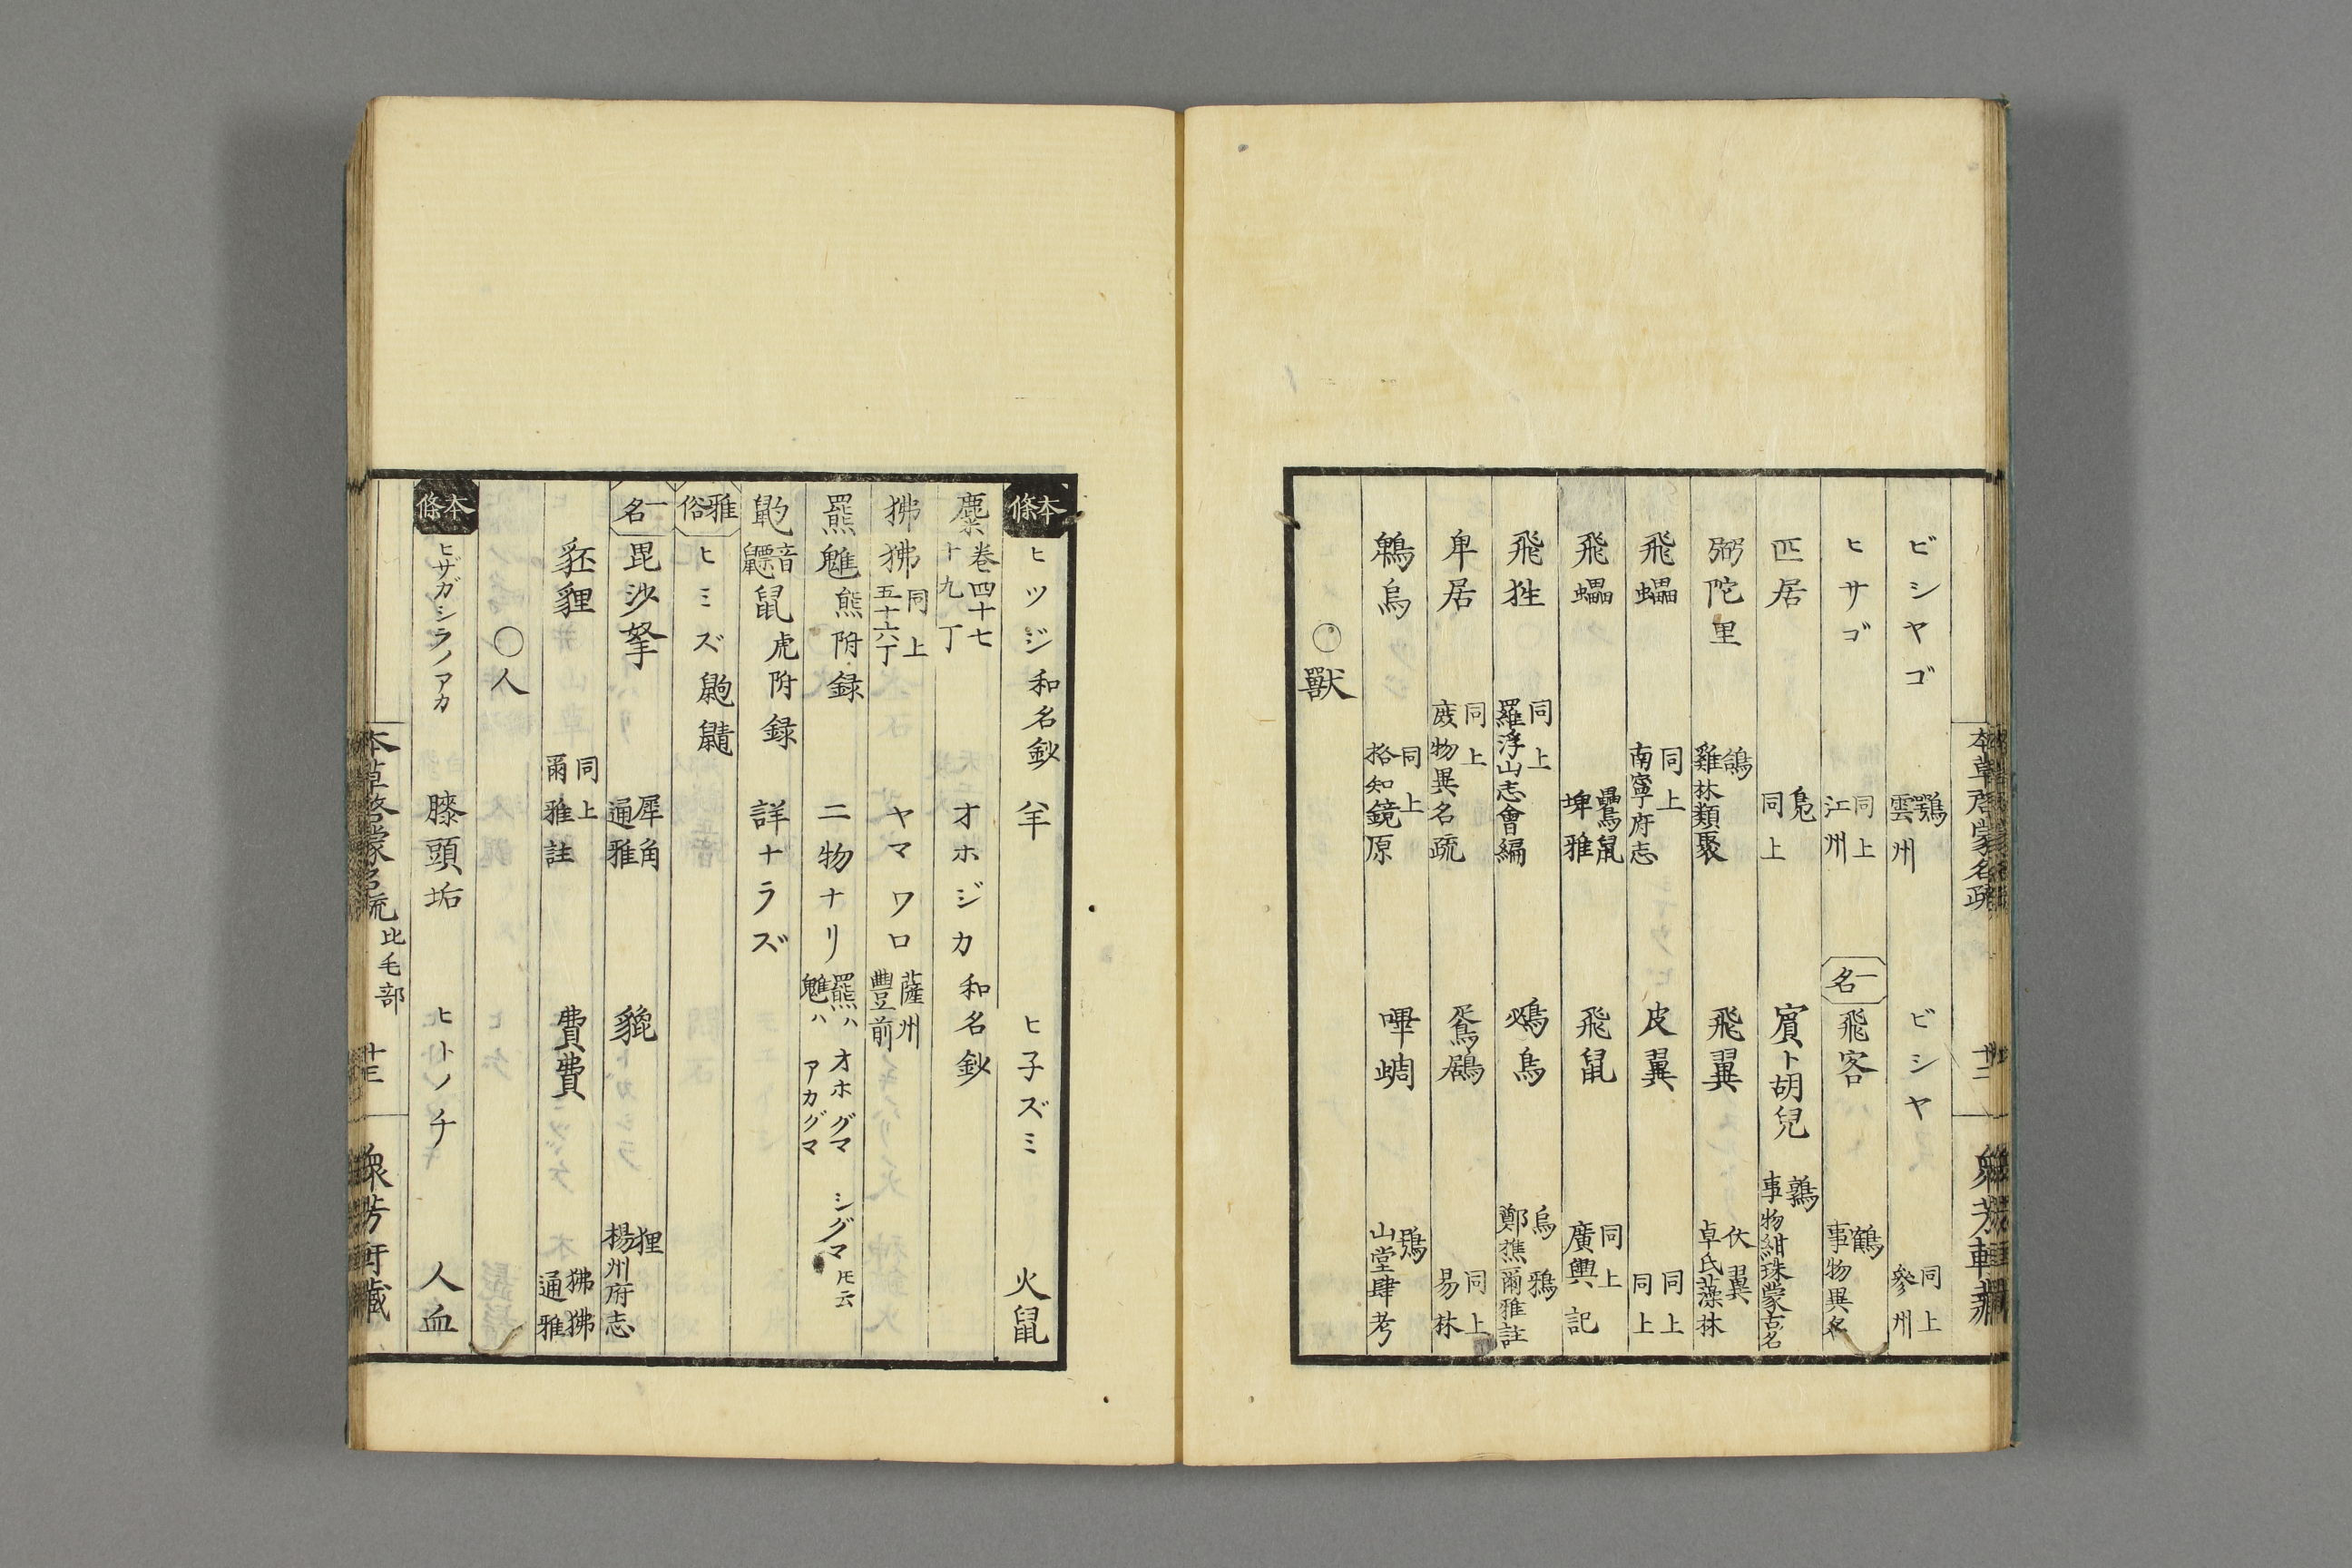 本草啓蒙名疏 十二 衆芳軒藏
ビシヤゴ 鶚 雲州 ビシヤ 同上 參州
ヒサゴ 同上 江州 一名 飛客 鶴 事物異名
匹居 鳬 同上 賓卜胡兒 鶉 事物紺珠蒙古名
弼陀里 鴿 雞林類聚 飛翼 伏翼 卓氏藻林
飛蠝 同上 南寧府志 皮翼 同上 同上
飛蠝 鸓鼠 埤雅 飛鼠 同上 廣輿記
飛狌 同上 羅浮山志會編 鳥 烏鴉 鄭樵爾雅註
卑居 同上 庶物異名疏 同上 易林
鵯烏 同上 格知鏡原 嗶啁 鵙 山堂肆考
○獸
本條 ヒツジ 和名鈔 羊 ヒ子ズミ 火鼠
麋 卷四十七 十九丁 オホジカ 和名鈔
狒狒 同上 五十六丁 ヤマワロ 薩州 豐前
羆 魋 熊附録 二物ナリ 羆ハオホグマ シグマ𪜈云 魋ハアカグマ
鼩 音 鼠 虎附録 詳ナラズ
雅俗 ヒミズ
一名 毘沙拏 犀角 通雅 貔 狸 楊州府志
豾貍 同上 爾雅註 費費 狒狒 通雅
○人
本條 ヒザガシラノアカ 膝頭垢 ヒトノチ 人血
本草啓蒙名疏 比毛部 十三 衆芳軒藏